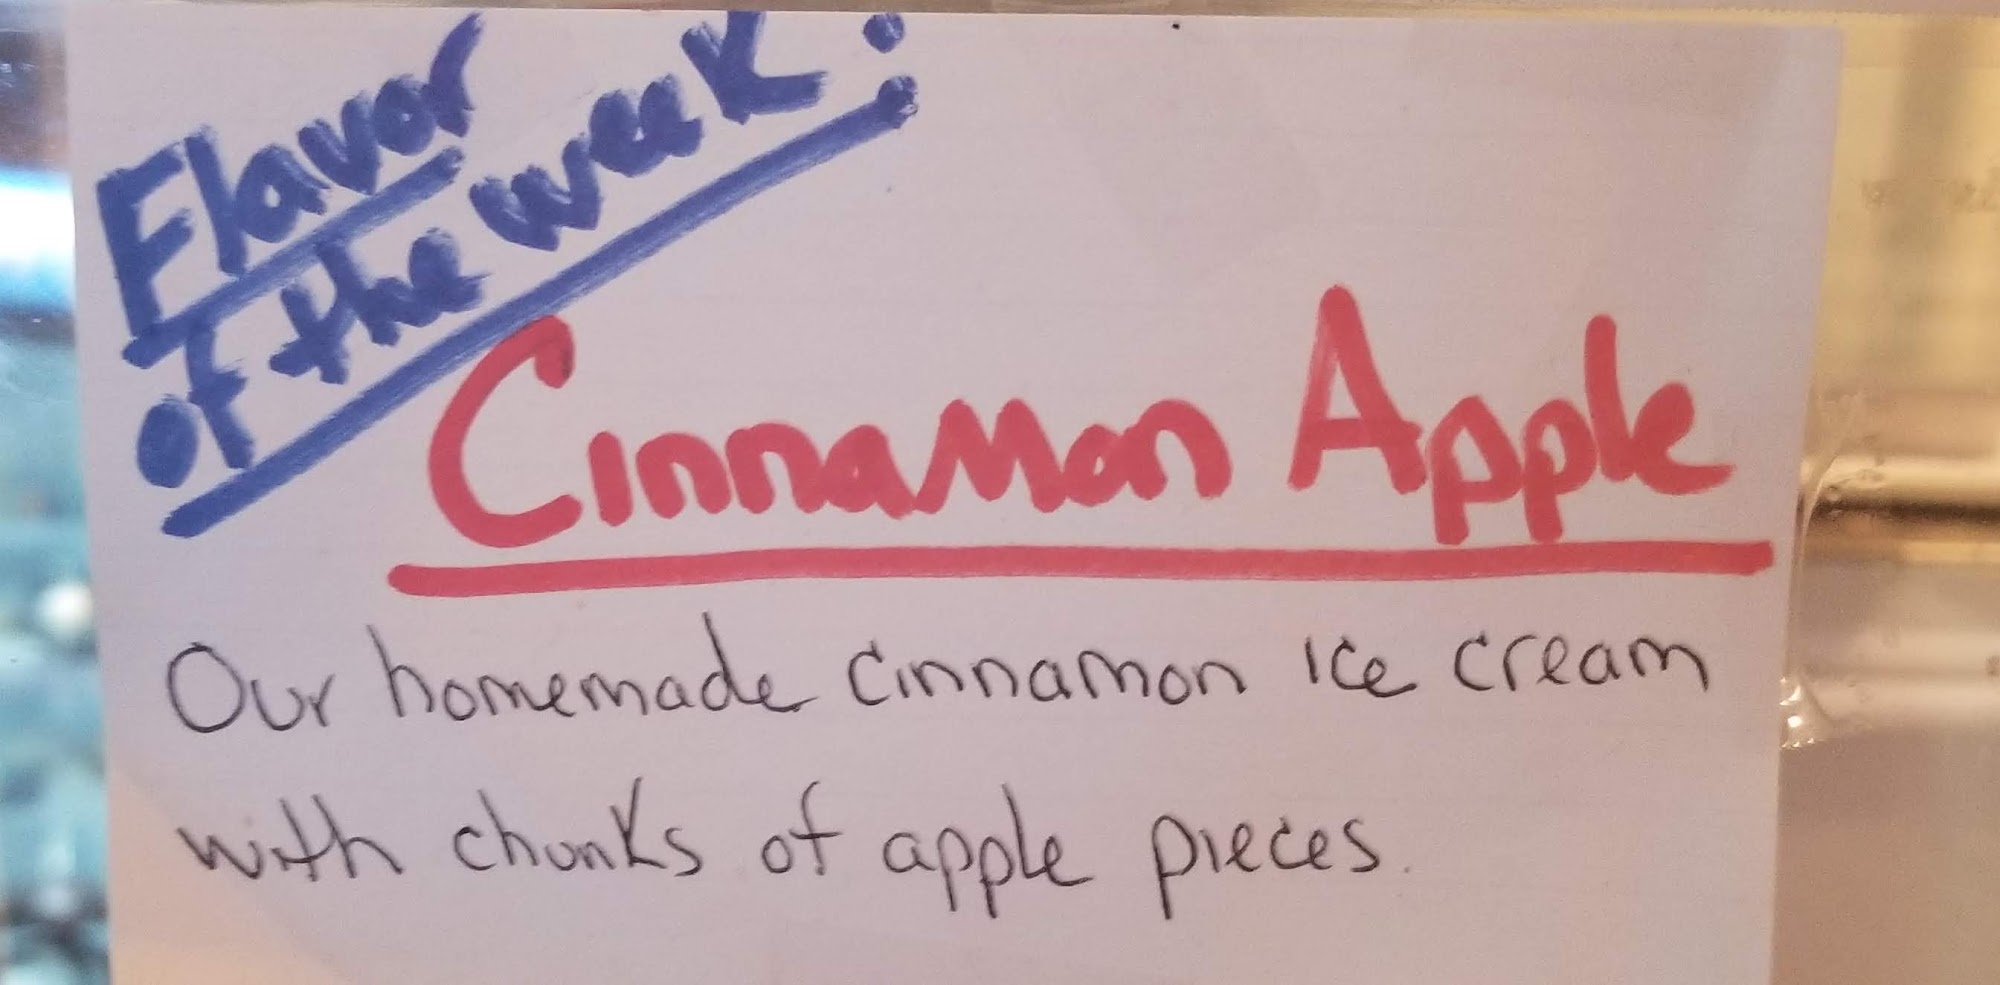 Flavor
of the week:
Cinnamon Apple
Our homemade cinnamon ice cream
with chunks of apple pieces.